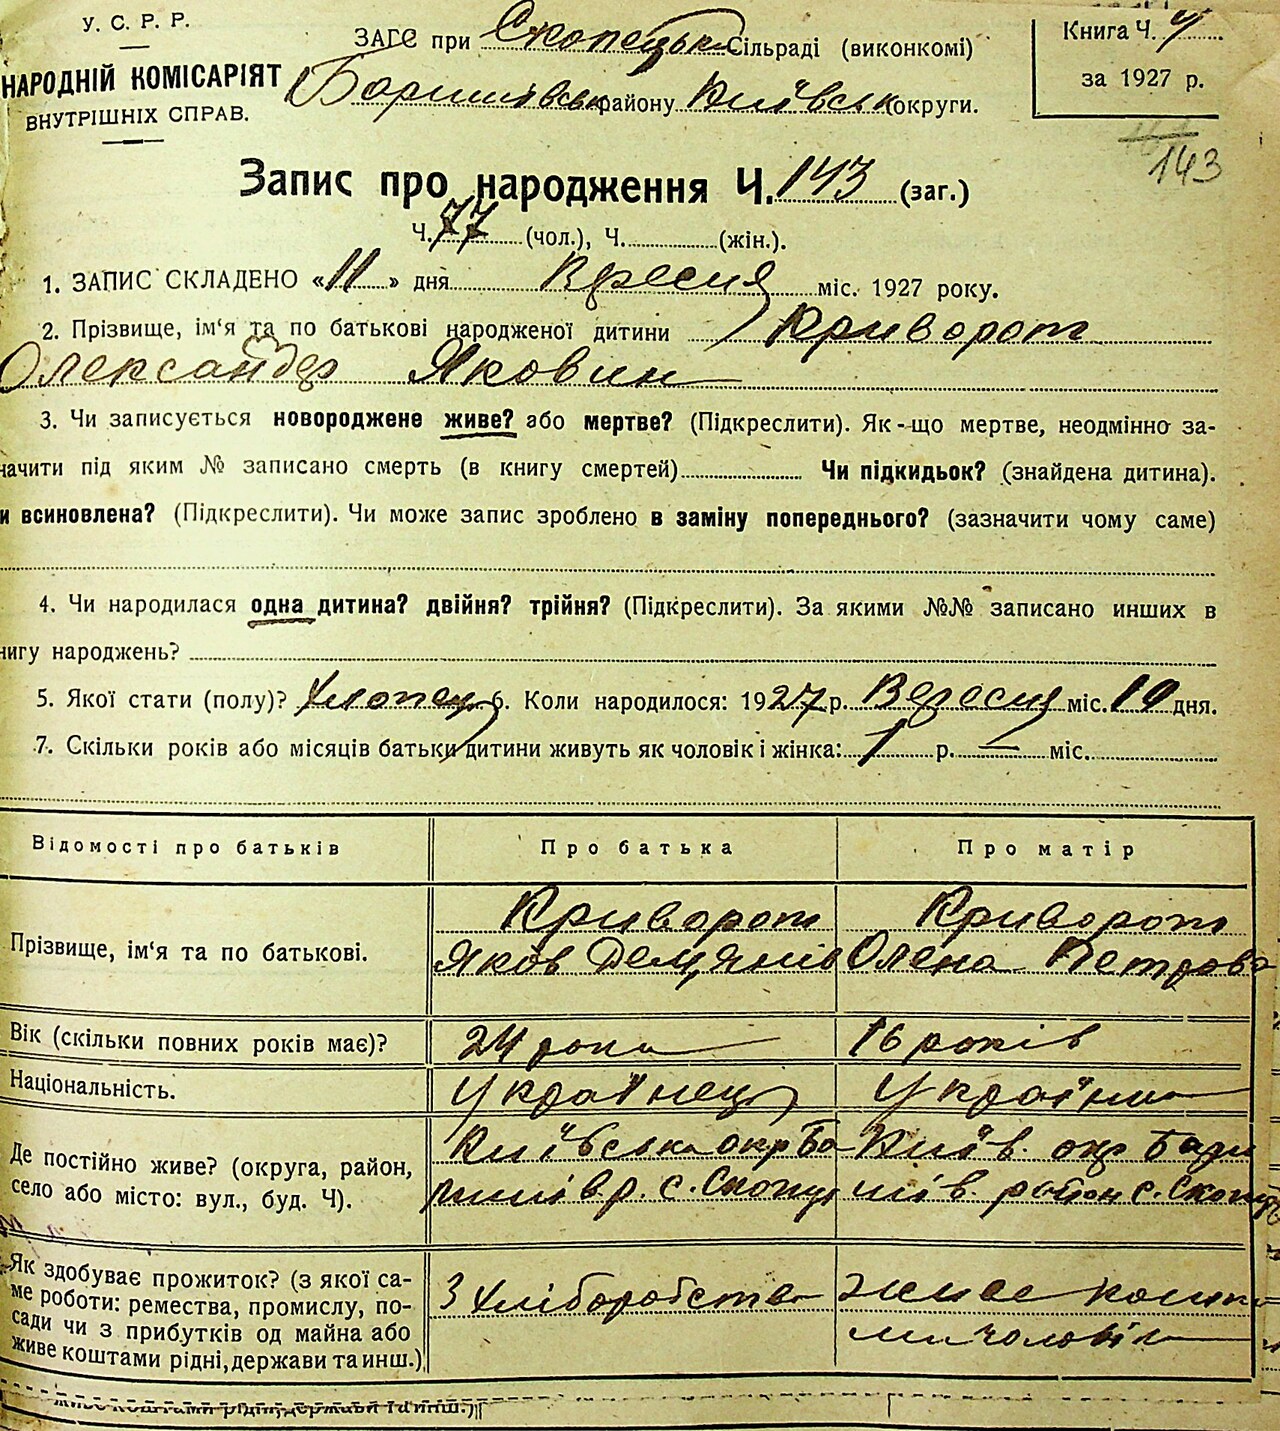 У. С. Р. Р.
НАРОДНІЙ КОМІСАРІЯТ
ВНУТРІШНІХ СПРАВ.
ЗАГС при Скопецькій Сільраді (виконкомі)
Баришівськ району Київськ округи.
Книга Ч. 4
за 1927 р.
143
Запис про народження Ч. 143 (заг.)
Ч. 77 (чол.), Ч. (жін.).
1. ЗАПИС СКЛАДЕНО «11» дня Вресня міс. 1927 року.
2. Прізвище, ім‘я та по батькові народженої дитини Криворот
Олександер Яковин
3. Чи записується новороджене живе? або мертве? (Підкреслити). Як-що мертве, неодмінно за-
начити під яким № записано смерть (в книгу смертей) Чи підкидьок? (знайдена дитина).
и всиновлена? (Підкреслити). Чи може запис зроблено в заміну попереднього? (зазначити чому саме)
4. Чи народилася одна дитина? двійня? трійня? (Підкреслити). За якими №№ записано инших в
нигу народжень?
5. Якої стати (полу)? Хлопец 6. Коли народилося: 1927 р. Вересня міс. 10 дня.
7. Скільки років або місяців батьки дитини живуть як чоловік і жінка: 1 р. — міс.
Відомості про батьків Про батька Про матір
Прізвище, ім‘я та по батькові.
Криворот
Яков Демянів
Криворот
Олена Петрова
Вік (скільки повних років має)? 24 роки 16 років
Національність. Українець Українка
Де постійно живе? (округа, район,
село або місто: вул., буд. Ч).
Київська окр Ба
ришів р. с. Скопці
Київ. окр Бари
шів. район с. Скопці
Як здобуває прожиток? (з якої са-
ме роботи: ремества, промислу, по-
сади чи з прибутків од майна або
живе коштами рідні, держави та инш.)
З Хліборобства
живе кошта
ми чоловік
живе коштами рідні, держави та инш.)